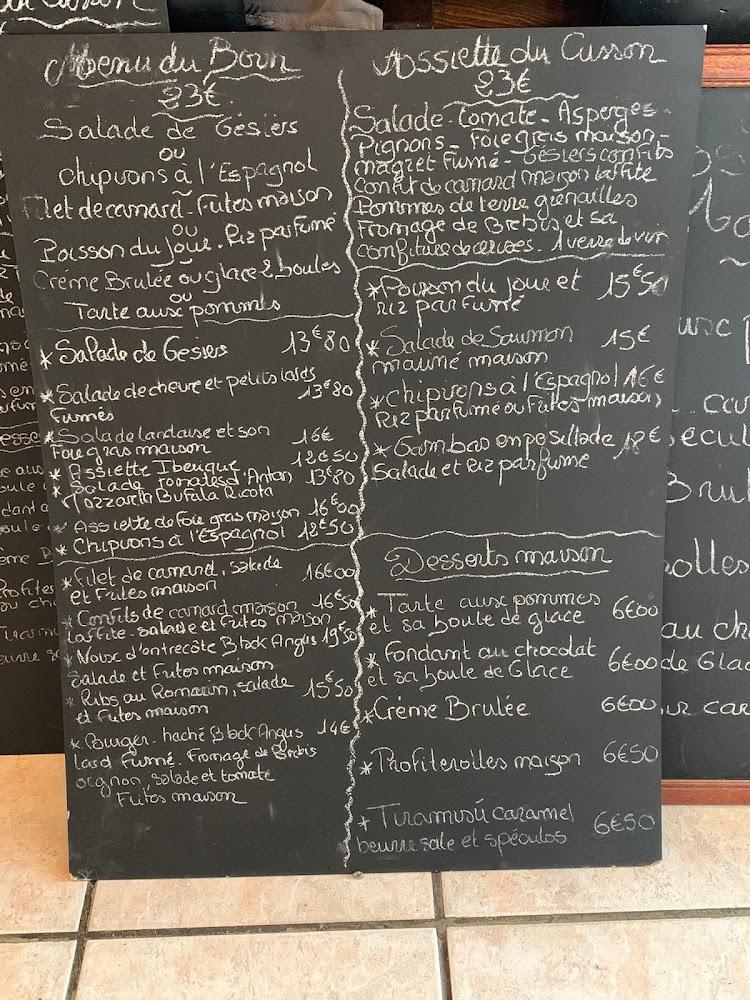 Menu du Born
23€
Salade de Gésiers
ou
chipirons à l'Espagnol
Filet de canard. Frites maison
ou
Poisson du jour. Riz parfumé
Crème Brulée ou glace 2 boules
ou
Tarte aux pommes
* Salade de Gesiers 13€80
* Salade de chevre et petits lards 13€80
fumés
* Salade landaise et son 16€
Foie gras maison
* Assiette Iberique 12€50
* Salade tomates d'Antan 13€80
Mozzarella Bufala Ricota
* Assiette de foie gras maison 16€00
* Chipirons à l'Espagnol 12€50
* Filet de canard, salade 16€00
et Frites maison
* Confits de canard maison 16€50
Laffite - salade et Frites maison
* Noix d'entrecôte Black Angus 19€50
Salade et Frites maison
* Ribs au Romarin, salade 15€50
et Frites maison
* Burger. haché Black Angus 14€
lard fumé. Fromage de Brebis
oignon, salade et tomate
Frites maison
Assiette du Cusson
23€
Salade - tomate - Asperges -
Pignons - Foie gras maison -
magret fumé - Gésiers confits
Confit de canard maison Laffite
Pommes de terre grenailles
Fromage de Brebis et sa
confiture de cerises. 1 verre de vin
* Poisson du jour et 15€50
riz parfumé
* Salade de Saumon 15€
mariné maison
* chipirons à l'Espagnol 16€
Riz parfumé ou Frites maison
* Gambas en persillade 18€
Salade et Riz parfumé
Desserts maison
* Tarte aux pommes 6€00
et sa boule de glace
* Fondant au chocolat 6€00
et sa boule de Glace
* Crème Brulée 6€00
* Profiterolles maison 6€50
* Tiramisú caramel 6€50
beurre sale et spéculos